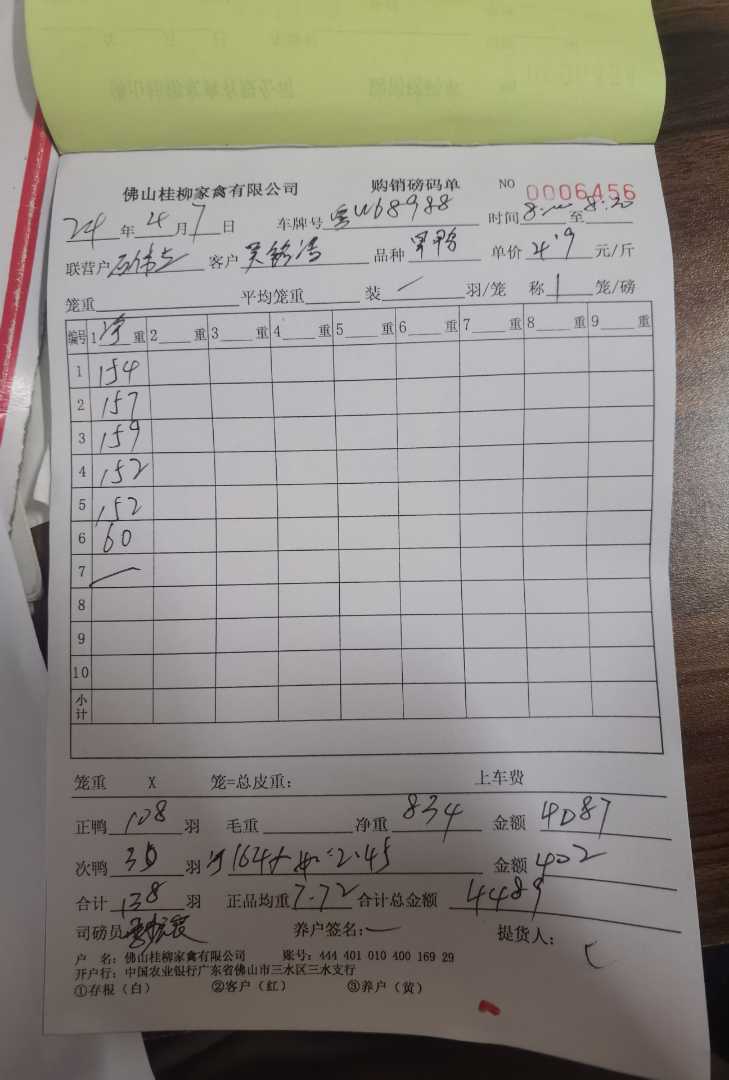 佛山桂柳家禽有限公司 购销磅码单 NO 0006456
24年4月7日 车牌号粤W68988 时间8:00至8:20
联营户 客户 品种 单价4.9元/斤
笼重 平均笼重 装一羽/笼 称1笼/磅
编号 1净重 2重 3重 4重 5重 6重 7重 8重 9重
1 154
2 157
3 159
4 152
5 152
6 60
7
8
9
10
小计
笼重 X 笼=总皮重: 上车费
正鸭108羽 毛重 净重834 金额4087
次鸭30羽 净164斤 2.45 金额402
合计138羽 正品均重7.72 合计总金额4489
司磅员 养户签名: 提货人:
户 名: 佛山桂柳家禽有限公司 账号: 444 401 010 400 169 29
开户行: 中国农业银行广东省佛山市三水区三水支行
①存根(白) ②客户(红) ③养户(黄)